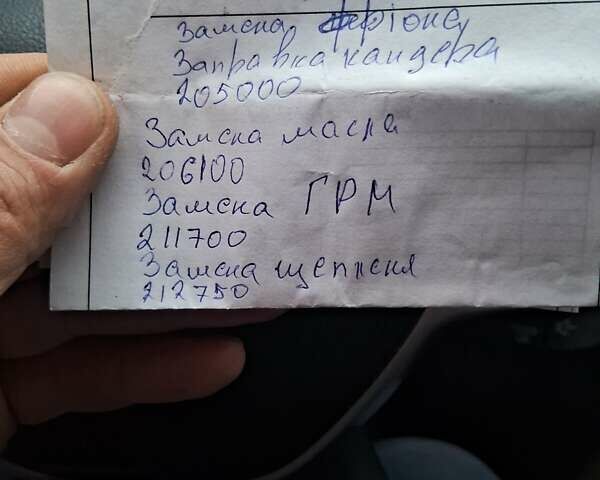 Замєна фріона
Заправка кандера
205000
Замєна масла
206100
Замєна ГРМ
211700
Замєна щепленя
212750